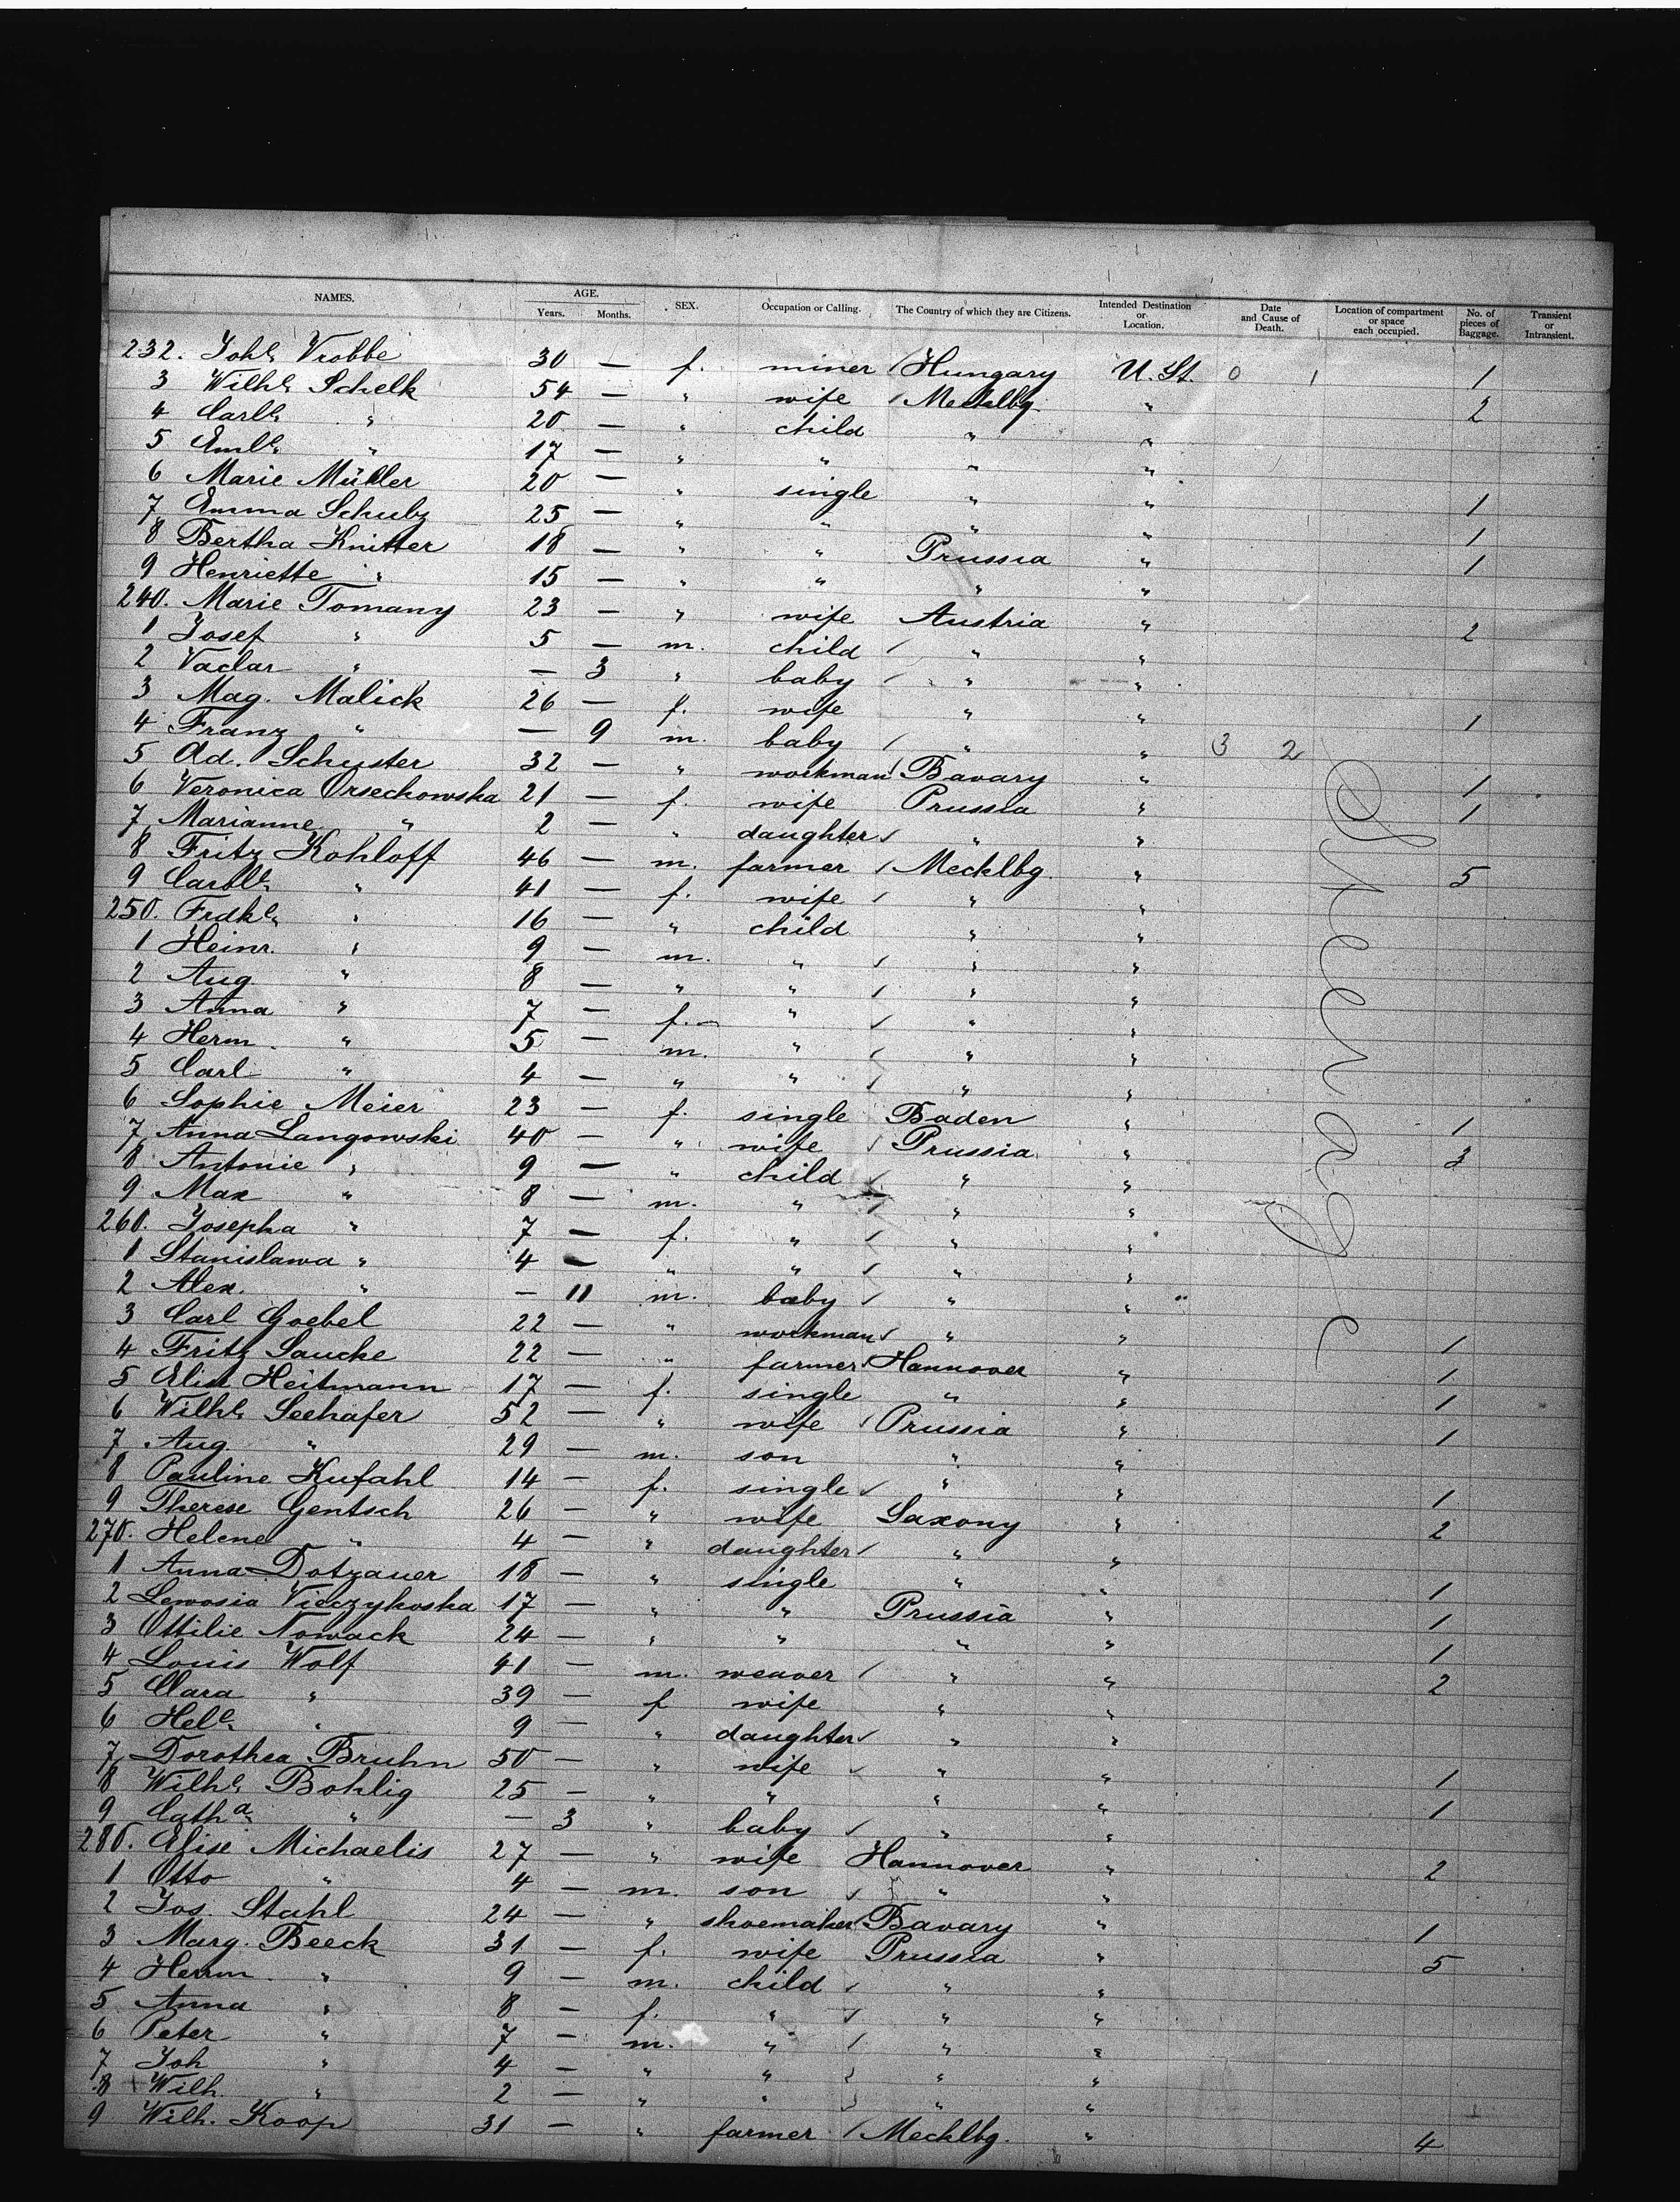 NAMES. AGE. Years. Months. SEX. Occupation or Calling. The Country of which they are Citizens. Intended Destination or Location. Date and Cause of Death. Location of compartment or space each occupied. No. of pieces of Baggage. Transient or Intransient.
232. Johe. Vrobbe 30 — f. miner Hungary U. St. 0 1 1
3 Wilhe. Schelk 54 — " wife Mecklbg. " 2
4 Carle. " 20 — " child " "
5 Emle. " 17 — " " " "
6 Marie Müller 20 — " single " " 1
7 Emma Schulz 25 — " " " " 1
8 Bertha Knitter 18 — " " Prussia " 1
9 Henriette " 15 — " " " "
240. Marie Tomany 23 — " wife Austria " 2
1 Josef " 5 — m. child " "
2 Vaclar " — 3 " baby " "
3 Mag. Malick 26 — f. wife " " 1
4 Franz " — 9 m. baby " " 3 2
5 Ad. Schuster 32 — " workman Bavary " 1
6 Veronica Orsechowska 21 — f. wife Prussia " 1
7 Marianne " 2 — " daughter " "
8 Fritz Kohloff 46 — m. farmer Mecklbg. " 5
9 " 41 — f. wife " "
250. Frdke. " 16 — " child " "
1 Heinr. " 9 — m. " " "
2 Aug. " 8 — " " " "
3 Anna " 7 — f. " " "
4 Herm. " 5 — m. " " "
5 Carl " 4 — " " " "
6 Sophie Meier 23 — f. single Baden " 1
7 Anna Langowski 40 — " wife Prussia " 3
8 Antonie " 9 — " child " "
9 Max " 8 — m. " " "
260. Josepha " 7 — f. " " "
1 Stanislawa " 4 — " " " "
2 Alex. " — 11 m. baby " "
3 Carl Goebel 22 — " workman " " 1
4 Fritz Saucke 22 — " farmer Hannover " 1
5 Elise Heitmann 17 — f. single " " 1
6 Wilhe. Seehafer 52 — " wife Prussia " 1
7 Aug. " 29 — m. son " "
8 Pauline Kufahl 14 — f. single " " 1
9 Therese Gentsch 26 — " wife Saxony " 2
270. Helene " 4 — " daughter " "
1 Anna Dotzauer 18 — " single " " 1
2 17 — " " Prussia " 1
3 Ottilie Nowack 24 — " " " " 1
4 Louis Wolf 41 — m. weaver " " 2
5 Clara " 39 — f wife " "
6 Hele. " 9 — " daughter " "
7 Dorothea Bruhn 50 — " wife " " 1
8 Wilhe. Bohlig 25 — " " " " 1
9 Catha. " — 3 " baby " "
280. Elise Michaelis 27 — " wife Hannover " 2
1 Otto " 4 — m. son " "
2 Jos. Stahl 24 — " shoemaker Bavary " 1
3 Marg. Beeck 31 — f. wife Prussia " 5
4 Herm. " 9 — m. child " "
5 Anna " 8 — f. " " "
6 Peter " 7 — m. " " "
7 Joh " 4 — " " " "
8 Wilh. " 2 — " " " "
9 Wilh. Koop 31 — " farmer Mecklbg. " 4
Steerage